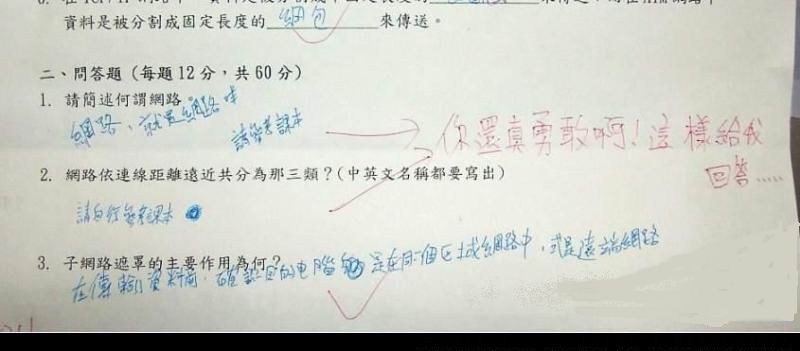 資料是被分割成固定長度的 網包 來傳送。
二、問答題(每題12分,共60分)
1. 請簡述何謂網路。
網路、就是網路咩
請參考課本
你還真勇敢啊!這樣給我
回答.....
2. 網路依連線距離遠近共分為那三類?(中英文名稱都要寫出)
請自行參考課本
3. 子網路遮罩的主要作用為何?
在傳輸資料前,確認目的电腦 是在同個区域網路中,或是遠端網路